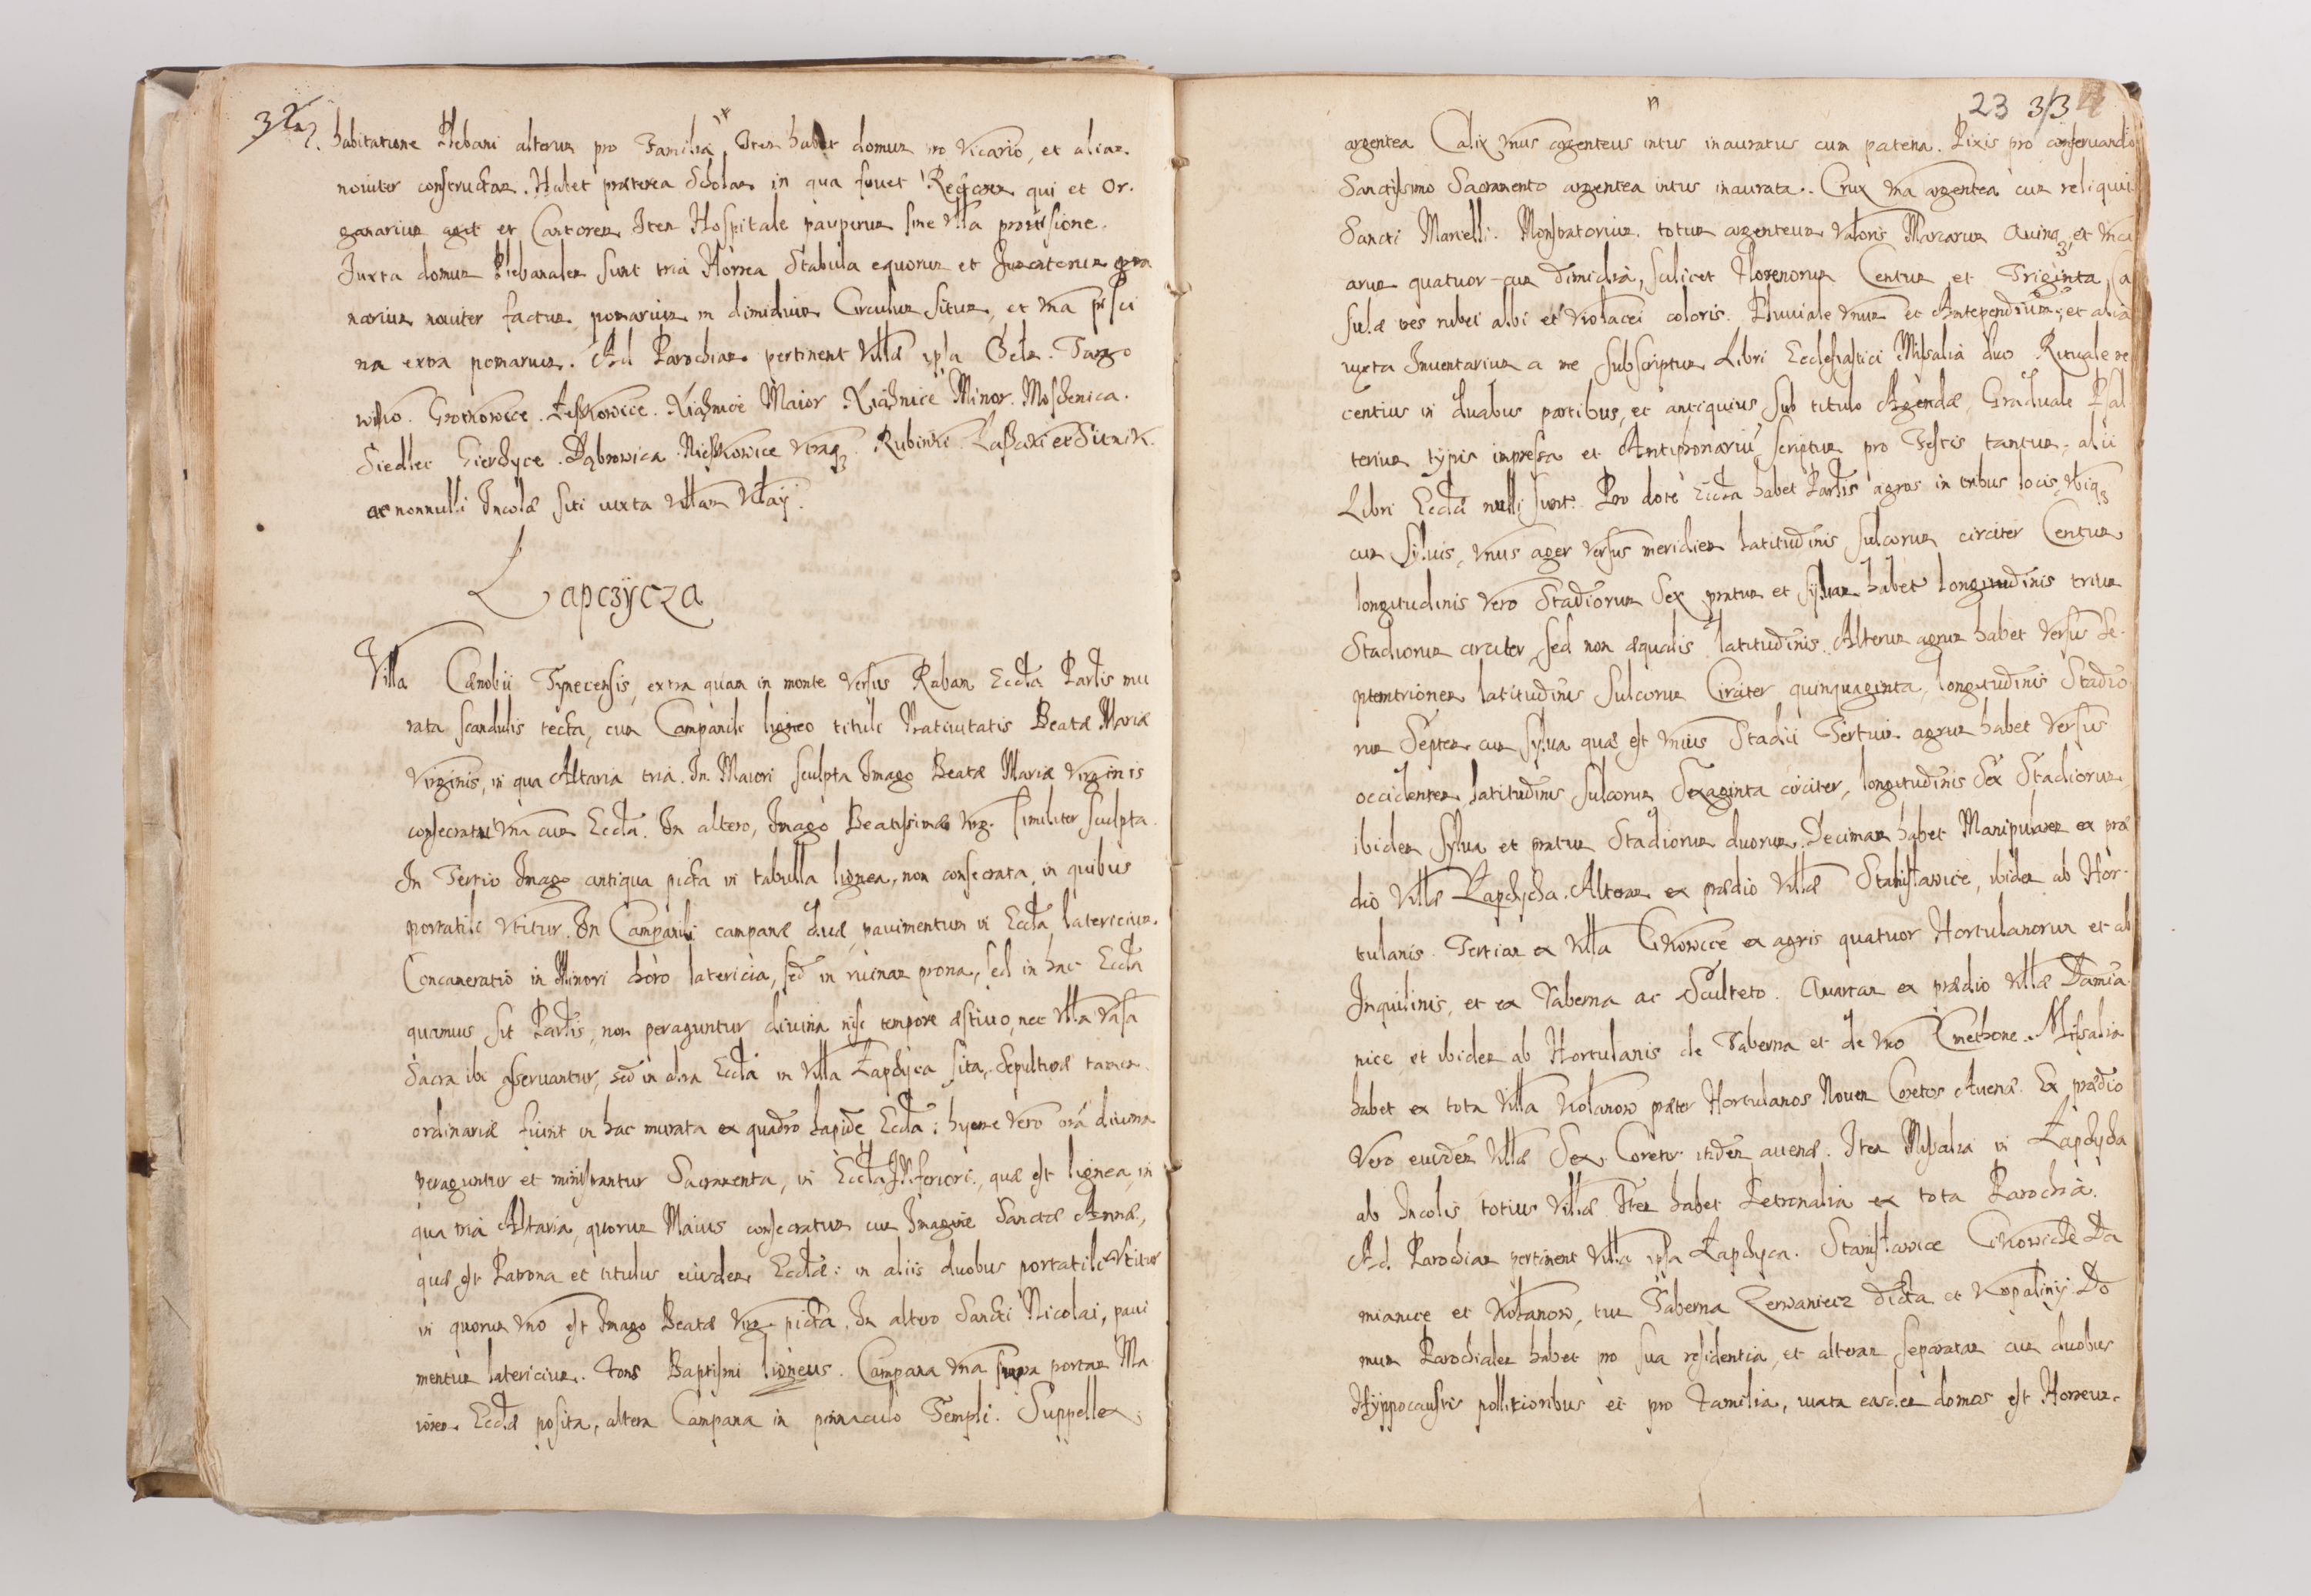 habitatione Plebani alterum pro Familia. Item habet domum pro Vicario, et aliam
noviter constructam. Habet præterea Scholam in qua fovet Rectorem qui et Or-
ganarium agit et Cantorem. Item Hospitale pauperum sine Vlla provisione.
Juxta domum Plebanalem sunt tria Horrea Stabula equorum et Jumentorum gra
narium noviter factum, pomarium in dimidium Circulum situm, et Vna pisci
na extra pomarium. Ad Parochiam pertinent Villæ ipsa Gdw. Targo
wisko. Grotkowice. Leszkowice. Xiążnice Maior. Xiążnice Minor. Moszenica.
Siedlec Gierczyce. Dąbrowica. Nieszkowice Vtraq3. Rubinki. Łaszaki et Sitnik.
ac nonnulli Incolæ siti iuxta Villam
Łapczycza
Villa Cænobii Tynecensis, extra quam in monte versus Raban Eccla Parlis mu
rata scandulis tecta, cum Campanili ligneo tituli Nativitatis Beatæ Mariæ
Virginis, in qua Altaria tria. In Maiori sculpta Imago Beatæ Mariæ Virginis
consecratum Vna cum Eccla. In altero, Imago Beatissimæ Virg. similiter sculpta.
In Tertio Imago antiqua picta in tabulla lignea, non consecrata, in quibus
portatili Vtitur. In Campanili campanæ duæ, pavimentum in Eccla latericium.
Concameratio in Minori choro latericia, sed in ruinam prona, sed in hac Eccla
quamvis sit Parlis, non peraguntur divina nisi tempore æstivo, nec Vlla Vasa
Sacra ibi asservantur, sed in alia Eccla in Villa Łapczyca sita, Sepulturæ tamen
ordinariæ fiunt in hac murata ex quadro lapide Eccla; hyeme vero oia divina
peraguntur et ministrantur Sacramenta, in Eccla Inferiori, quæ est lignea, in
qua tria Altaria, quorum Maius consecratum cum Imagine Sanctæ Annæ,
quæ est Patrona et titulus eiusdem Ecclæ: in aliis duobus portatili Vtitur
in quorum Vno est Imago Beatæ Virg. picta. In altero Sancti Nicolai, pavi
mentum latericium. Fons Baptismi ligneus. Campana Vna supra portam Ma
iorem Ecclæ posita, altera Campana in pinnaculo Templi. Suppellex
23 3/3
argentea Calix Vnus argenteus intus inauratus cum patena. Pixis pro conservando
Sanctissimo Sacramento argentea intus inaurata. Crux Vna argentea cum reliquiis
Sancti Marcelli. Monstratorium totum argenteum Valoris Marcarum Quinq3, et Vnci
arum quatuor cum dimidia, scilicet Florenorum Centum et Triginta, Ca
sulæ tres rubei albi et Violacei coloris. Pluviale Vnum et Antependium, et alia
iuxta Inventarium a me subscriptum. Libri Ecclesiastici Missalia duo Rituale re
centius in duabus partibus, et antiquius sub titulo Agendæ, Graduale Psal
terium typis impressa et Antiphonariu scriptum pro Festis tantum, alii
Libri Ecclæ nulli sunt. Pro dote Eccla habet Parlis agros in tribus locis, Vbiq3
cum Sylvis, Vnus ager versus meridiem latitudinis sulcorum circiter Centum
longitudinis vero Stadiorum Sex pratum et sylvam habet longitudinis trium
Stadiorum circiter, sed non æqualis latitudinis. Alterum agrum habet versus Se-
ptemtrionem latitudinis Sulcorum Circiter quinquaginta, longitudinis Stadio
rum Septem cum sylva quæ est Vnius Stadii Tertium agrum habet versus
occidentem latitudinis sulcorum Sexaginta circiter, longitudinis Sex Stadiorum,
ibidem Sylva et pratum Stadiorum duorum. Decimam habet Manipularem ex præ
dio Villæ Łapczycza. Alteram ex prædio Villæ Stanisławice, ibidem ab Hor-
tulanis. Tertiam ex Villa Cikowice ex agris quatuor Hortulanorum et ab
Inquilinis, et ex Taberna ac Sculteto. Quartam ex prædio Villæ Damia
nice et ibidem ab Hortulanis de Taberna et de Vno Cmethone. Missalia
habet ex tota Villa Kolanow præter Hortulanos Novem Coretos Avenæ. Ex prædio
Vero eiusdem Villæ Sex Coretos itidem avenæ. Item Missalia in Łapczycza
ab Incolis totius Villæ. Item habet Petronalia ex tota Parochia.
Ad Parochiam pertinent Villa ipsa Łapczyca. Stanisławice Cikowicze Da
mianice et Kolanow, tum Taberna Zerwaniecz dicta et Kopaliny. Do
mum Parochialem habet pro sua residentia, et alteram separatam cum duobus
Hyppocaustis pollitioribus et pro Familia, iuxta easdem domos est Horreum.